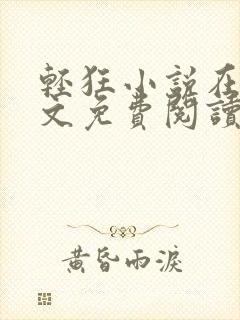 輕狂小說在
文免費閱讀
黃昏雨淚